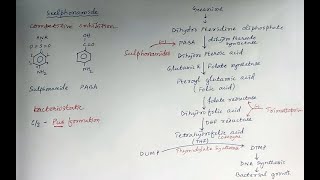 Sulphonamide
Competitive inhibition
NH₂
NH₂
Sulphonamide PABA
bacteriostatic
C/I - Pus formation
Guanosine
Dihydro Pteridine diphosphate
Sulphonamides
PABA
dihydro Pteroate
synthetase
Dihydro Pteroic acid
Glutamic
Folate synthetase
Pteroyl glutamic acid
(Folic acid)
folate reductase
Trimethoprim
Dihydrofolic acid
DHF reductase
Tetrahydrofolic acid
(THF)
Coenzyme
DUMP
Thymidylate Synthetase
DTMP
DNA Synthesis
Bacterial growth